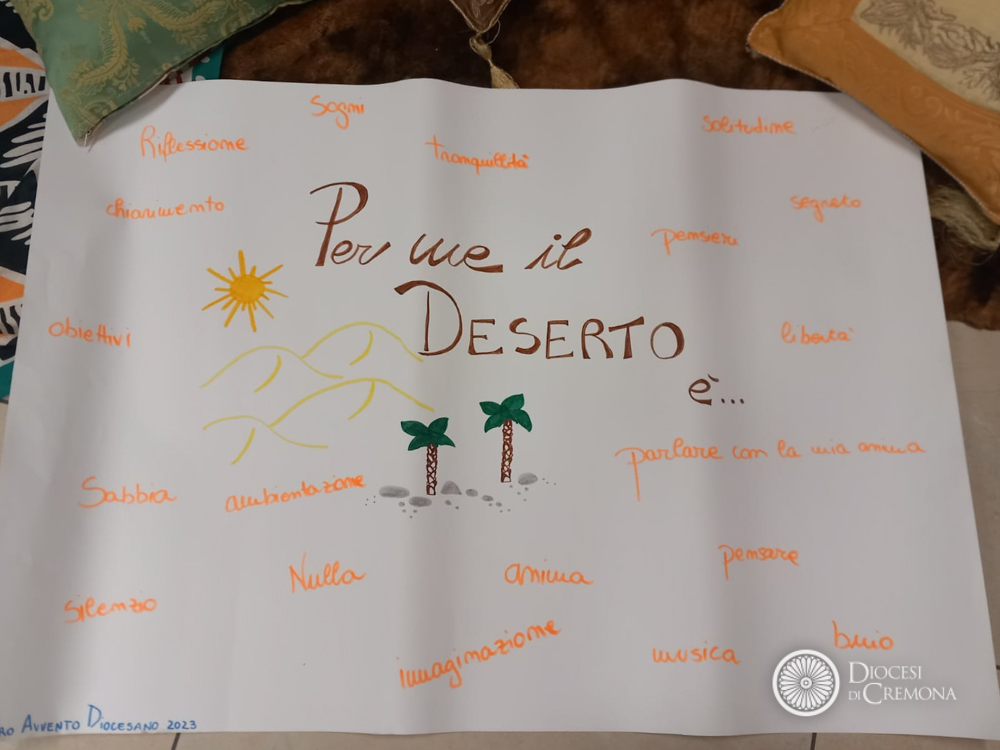 Sogni
solitudine
Riflessione
tranquillità
chiarimento
segreto
Per me il
pensieri
DESERTO
obiettivi
libertà
è...
parlare con la mia anima
Sabbia
ambientazione
pensare
Nulla
anima
silenzio
immaginazione
musica
buio
DIOCESI
DI CREMONA
AVVENTO DIOCESANO 2023